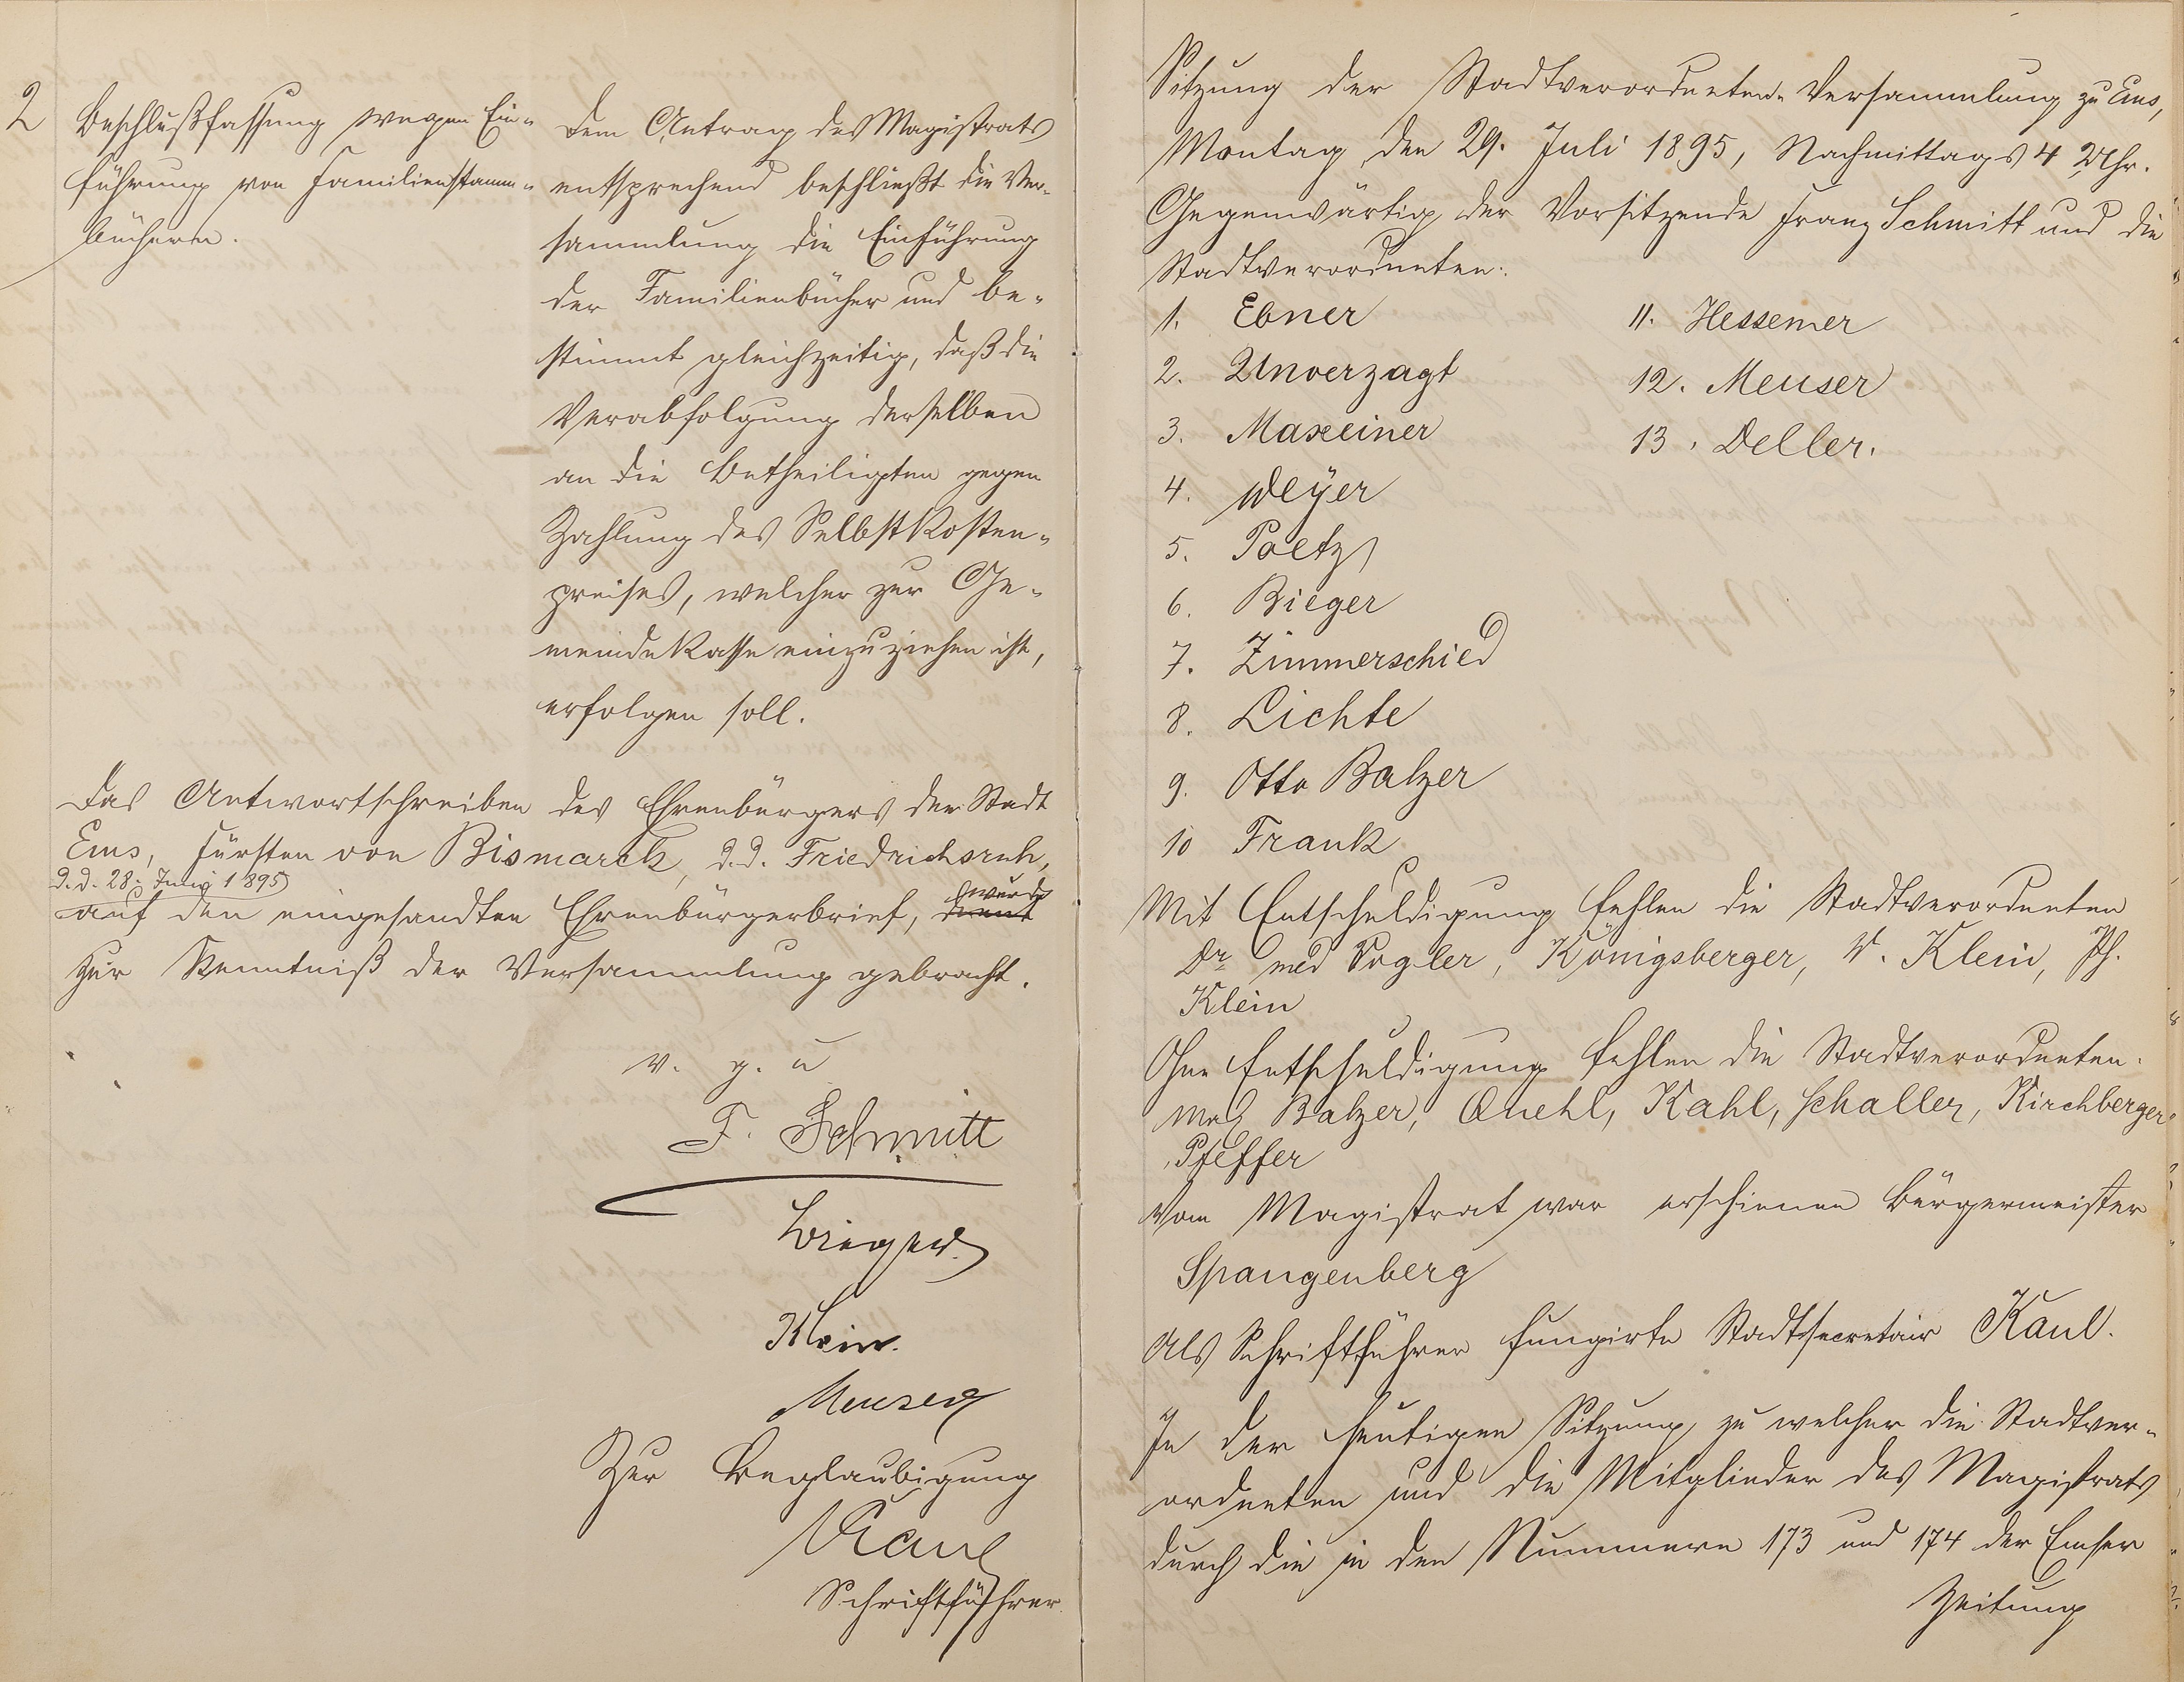 2
Beschlußfassung wegen Ein-
führung von Familienstamm-
büchern.
Dem Antrag des Magistrats
entsprechend beschließt die Ver-
sammlung die Einführung
der Familienbücher und be-
stimmt gleichzeitig, daß die
Verabfolgung derselben
an die Betheiligten gegen
Zahlung des Selbstkosten-
preises, welcher zur Ge-
meindekasse einzuziehen ist,
erfolgen soll.
Das Antwortschreiben des Ehrenbürgers der Stadt
Ems, Fürsten von Bismarck, d.d. Friedrichsruh,
d.d. 28. Juny 1895
auf den eingesandten Ehrenbürgerbrief, wurde
zur Kenntniß der Versammlung gebracht.
v. g. u
F. Schmitt
Bieger
Klein.
Meuser
Zur Beglaubigung
Kaul
Schriftführer
Sitzung der Stadtverordneten-Versammlung zu Ems,
Montag den 29. Juli 1895, Nachmittags 4 Uhr.
Gegenwärtig der Vorsitzende Franz Schmitt und die
Stadtverordneten:
1. Ebner
2. Unverzagt
3. Maxeiner
4. Weyer
5. Poetz
6. Bieger
7. Zimmerschied
8. Lichte
9. Otto Balzer
10 Frank
11. Hessemer
12. Meuser
13. Deller.
Mit Entschuldigung fehlen die Stadtverordneten
Dr med Vogler, Königsberger, W. Klein, Ph.
Klein
Ohne Entschuldigung fehlen die Stadtverordneten.
Balzer, Quehl, Kahl, Schaller, Kirchberger
Pfeffer
Vom Magistrat war erschienen Bürgermeister
Spangenberg
Als Schriftführer fungirte Stadtsecretair Kaul.
In der heutigen Sitzung, zu welcher die Stadtver-
ordneten und die Mitglieder des Magistrats
durch die in den Nummern 173 und 174 der Emser
Zeitung